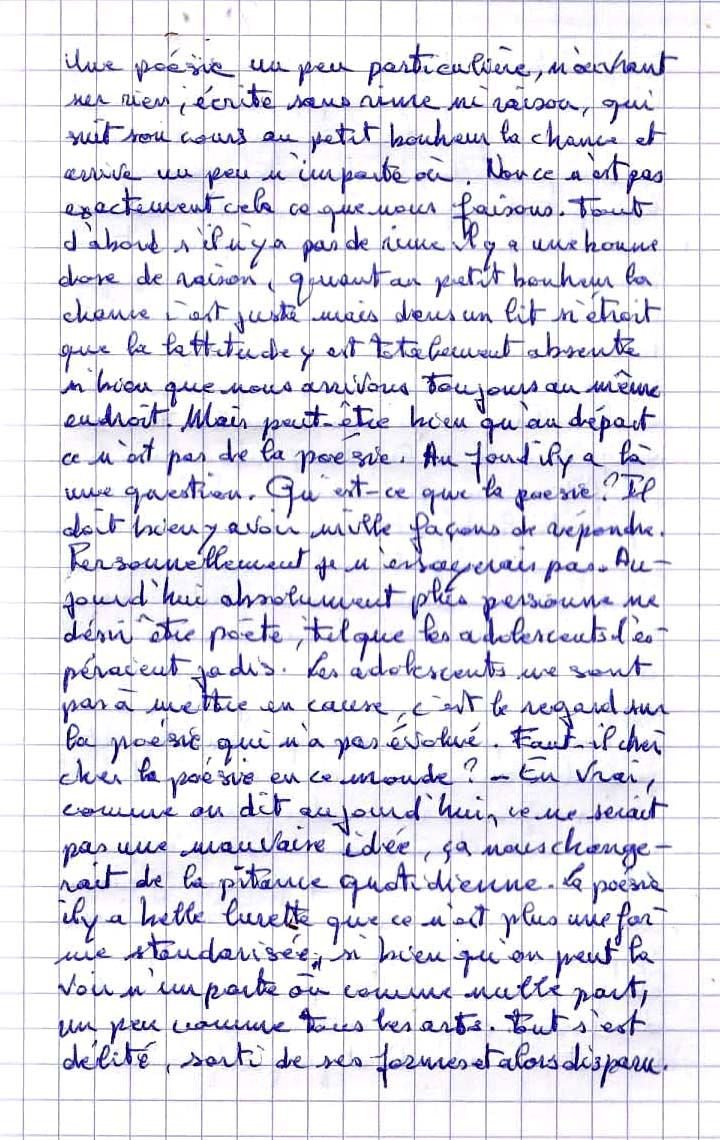 Une poésie un peu particulière, n'achant
sur rien, écrite sans rime ni raison, qui
suit son cours au petit bonheur la chance et
arrive un peu n'importe où. Non ce n'est pas
exactement cela ce que nous faisons. Tout
d'abord s'il n'y a pas de rime il y a une bonne
dose de raison, quant au petit bonheur la
chance c'est juste mais dans un lit si étroit
que la lattitude y est totalement absente
si bien que nous arrivons toujours au même
endroit. Mais peut-être bien qu'au départ
ce n'est pas de la poésie. Au fond il y a là
une question. Qu'est-ce que la poésie? Il
doit bien y avoir mille façons de répondre.
Personnellement je n'essayerais pas. Au-
jourd'hui absolument plus personne ne
désir être poète, tel que les adolescents l'es-
péraient jadis. Les adolescents ne sont
pas à mettre en cause, c'est le regard sur
la poésie qui n'a pas évolué. Faut-il cher
cher la poésie en ce monde? - En vrai,
comme on dit aujourd'hui, ce ne serait
pas une mauvaise idée, ça nous change-
rait de la pitance quotidienne. La poésie
il y a belle lurette que ce n'est plus une for-
me standarisée, si bien qu'on peut la
voir n'importe où comme nulle part,
un peu comme tous les arts. Tout s'est
délité, sorti de ses formes et alors disparu.